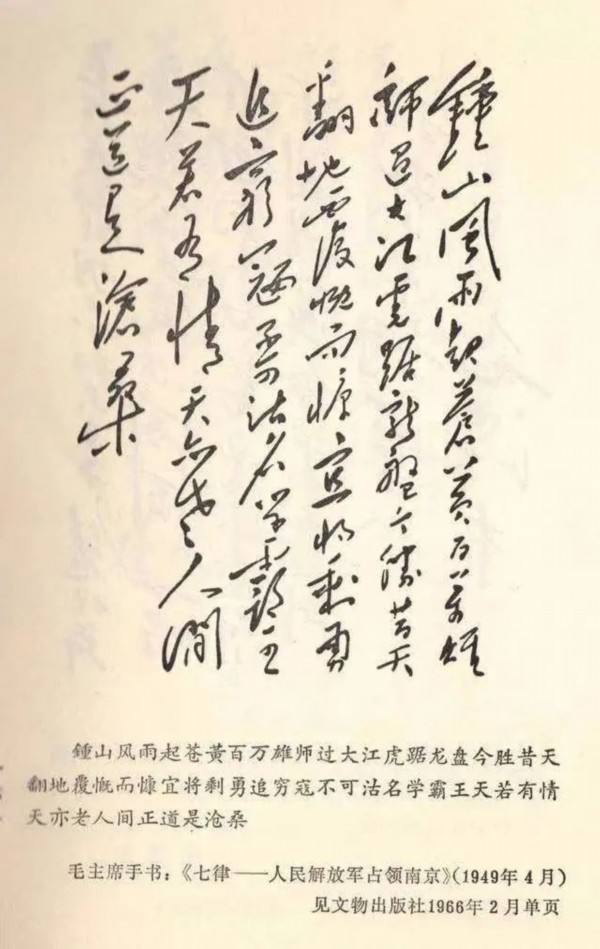 鍾山風雨起蒼黃百萬雄
師過大江虎踞龍盤今勝昔天
翻地覆慨而慷宜将剩勇
追窮寇不可沽名学霸王
天若有情天亦老人間
正道是滄桑
鍾山风雨起苍黄百万雄师过大江虎踞龙盘今胜昔天
翻地覆慨而慷宜将剩勇追穷寇不可沽名学霸王天若有情
天亦老人间正道是沧桑
毛主席手书：《七律——人民解放军占领南京》(1949年4月)
见文物出版社1966年2月单页